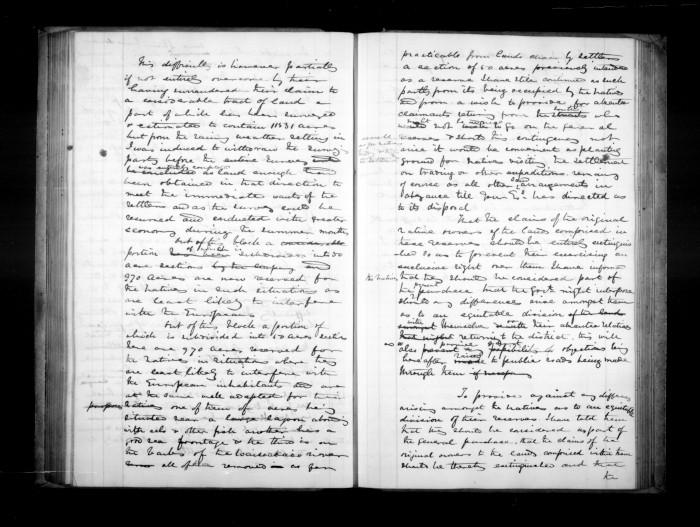 This difficulty is however partially
if not entirely overcome by their
having surrendered their claim to
a considerable tract of land a
part of which has been surveyed
& estimated to contain 11,31 acres
but from the rainy weather setting in
I was induced to withdraw the survey
party before the entire survey
was entirely completed
as land enough had
been obtained in that direction to
meet the immediate wants of the
settlers and as the survey could be
resumed and conducted with greater
economy during the summer months
Out of this block a considerable
portion of which is subdivided into 50
acre sections
970 acres are now reserved for
the natives in such situations as
are least likely to interfere
with the Europeans
Out of this block a portion of
which is subdivided into 50 acre sections
there are 970 acres reserved for
the natives in situations where they
are least likely to interfere with
the European inhabitants and are
at the same well adapted for their
purposes one of them of acres being
situated near a large lagoon abounding
with eels & other fish another has a
good sea frontage & the third is on
the banks of the river
all often removed as far
practicable from lands chosen by settlers
a section of 50 acres previously intended
as a reserve I have still continued as such
partly from its being occupied by the natives
and from a wish to provide for absentee
claimants returning from the who
might not to go on the general
reserves & should this contingency not
arise it would be convenient as planting
ground for natives visiting the settlement
on trading or other expeditions remaining
of course as all other arrangements in
abeyance till Your Ex. has directed as
to its disposal
That the claims of the original
native owners of the lands comprised in
these reserves should be entirely extinguis
hed so as to prevent their exercising an
exclusive right over them I have informed
the natives
that they should be considered part of
the general purchase, that the Govt. might interpose
should any differences arise amongst them
as to an equitable division
amongst themselves or with their absentee relatives
returning to the district, this will
also objections being
hereafter raised to public roads being made
through them
To provide against any difference
arising amongst the natives as to an equitable
division of their reserves I have told them
that they should be considered as part of
the general purchase that the claims of the
original owners to the lands comprised within them
should be thereby extinguished and that
the